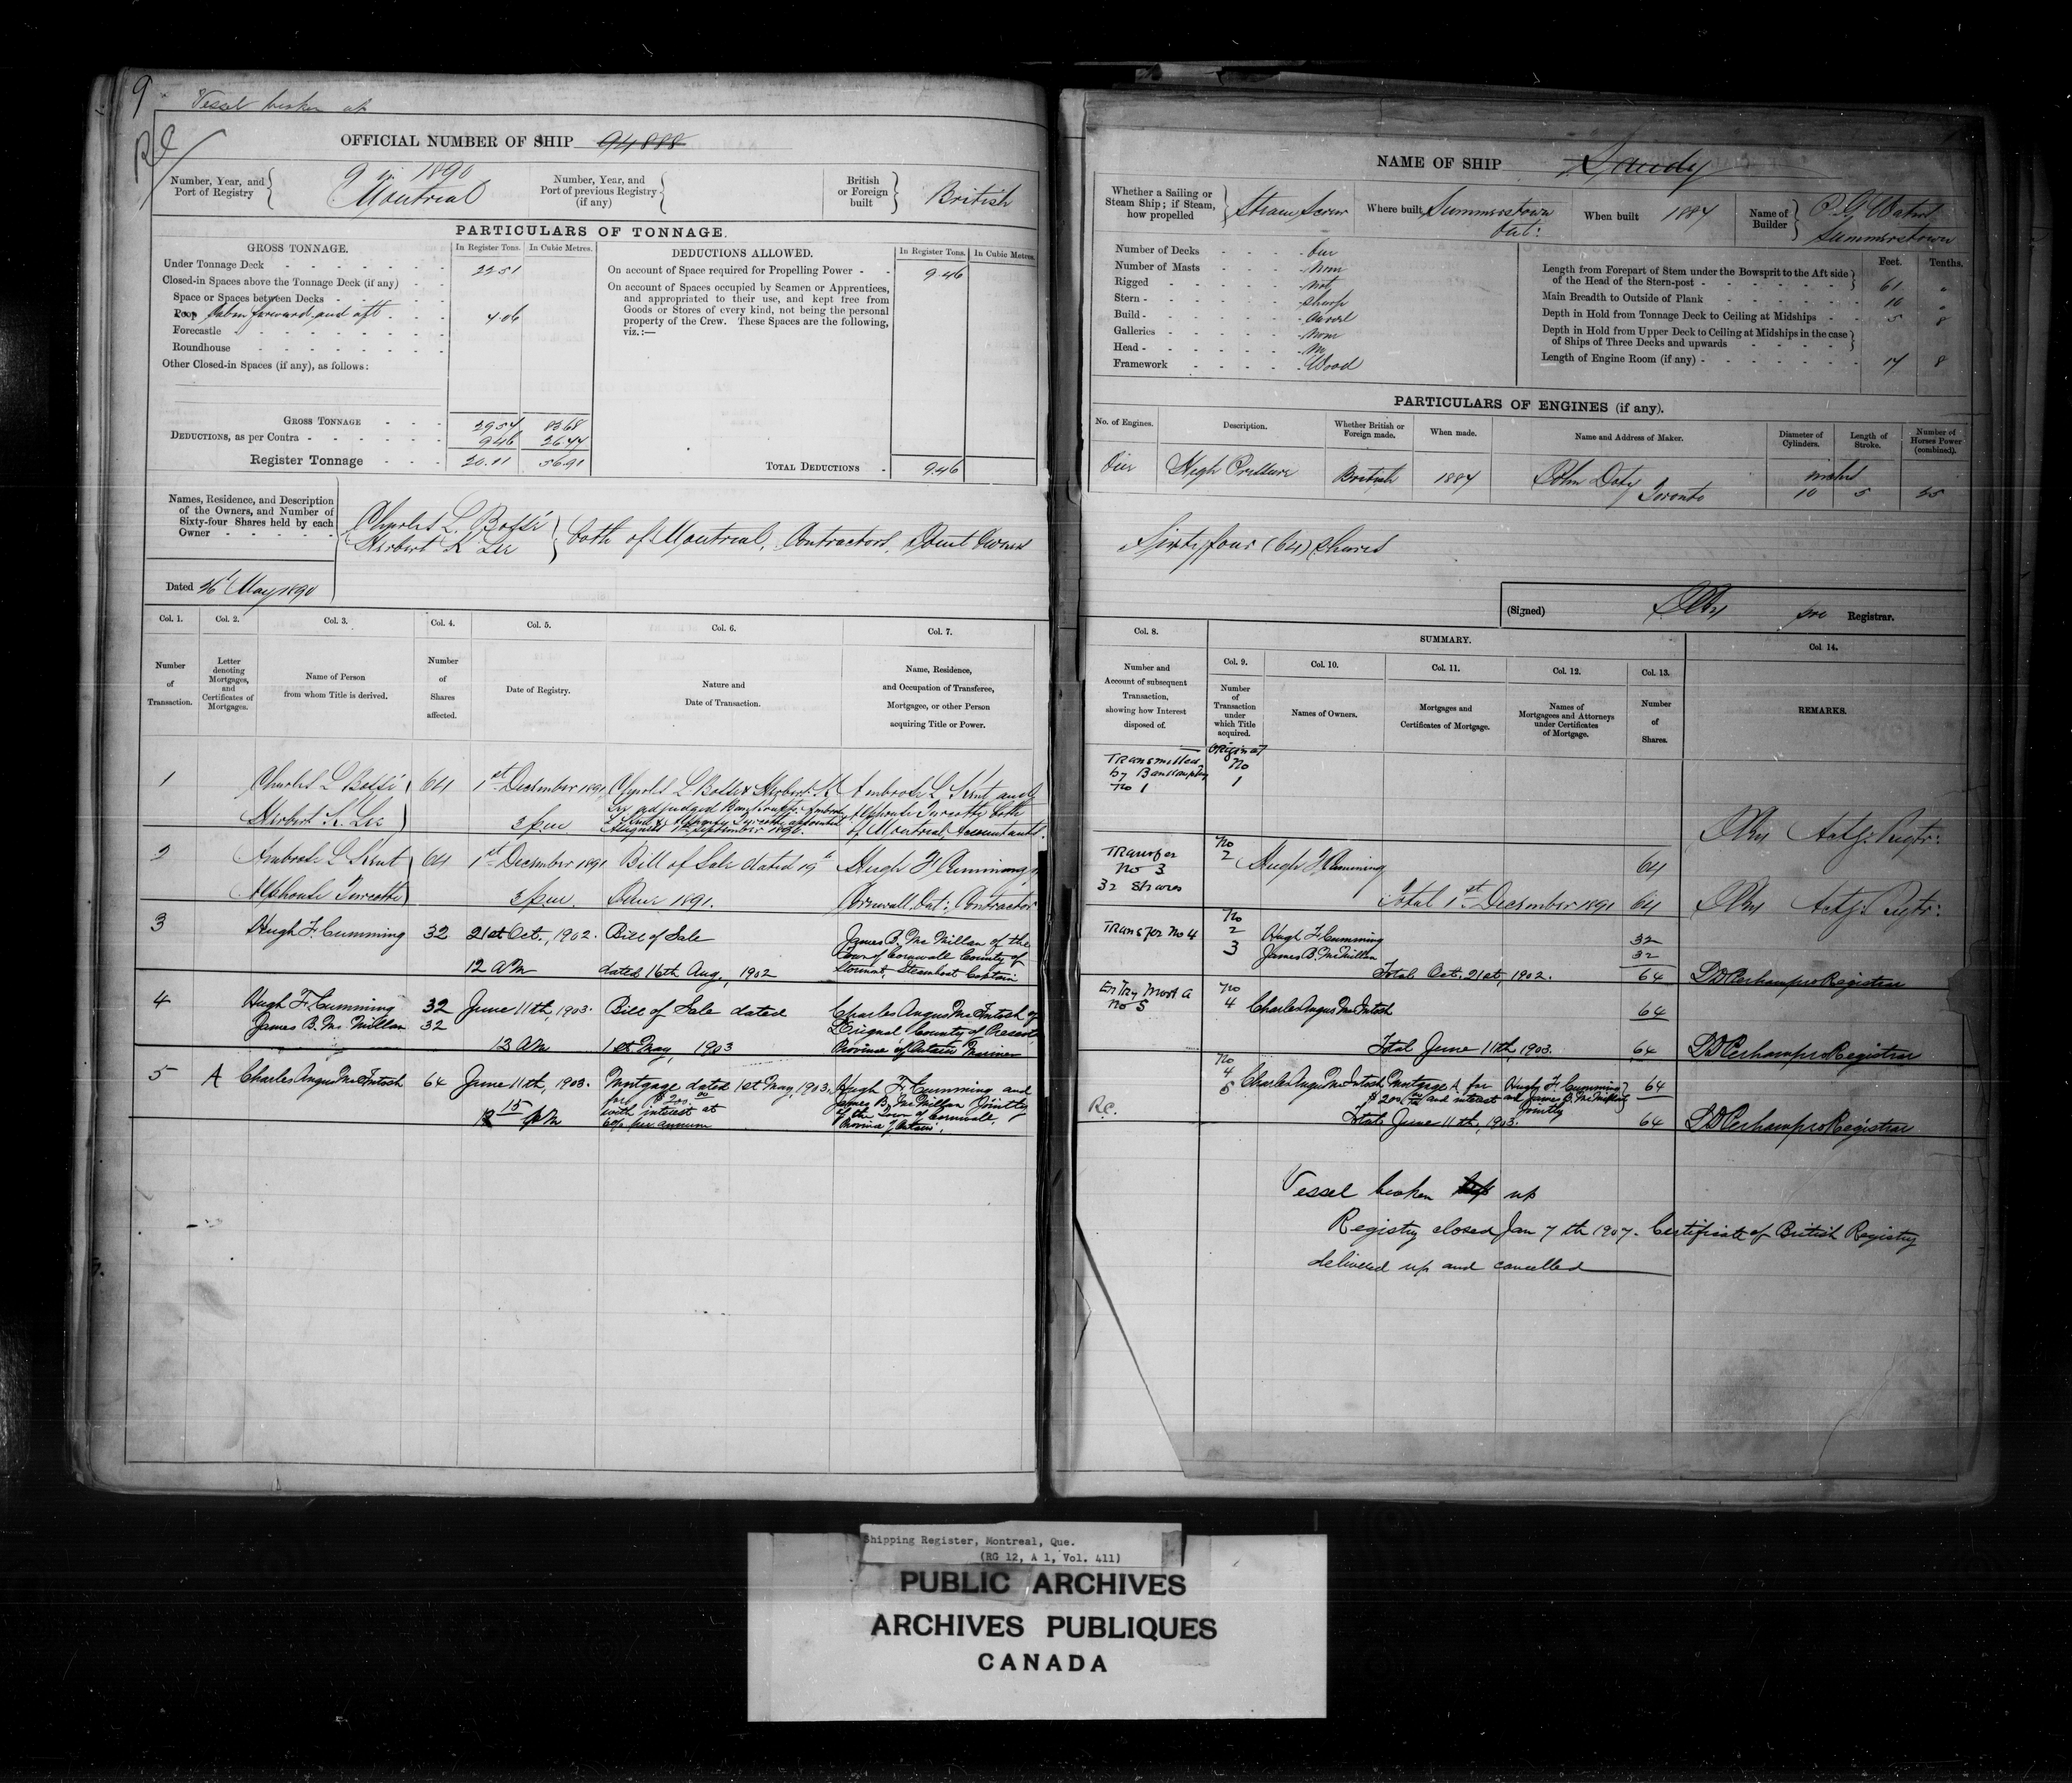 9
Vessel broken up
RC
OFFICIAL NUMBER OF SHIP 94888
Number, Year, and Port of Registry
9 in 1890
Montreal
Number, Year, and Port of previous Registry (if any)
British or Foreign built
British
PARTICULARS OF TONNAGE.
GROSS TONNAGE.
In Register Tons.
In Cubic Metres.
DEDUCTIONS ALLOWED.
In Register Tons.
In Cubic Metres.
Under Tonnage Deck
Closed-in Spaces above the Tonnage Deck (if any)
Space or Spaces between Decks
Poop Cabin forward and aft 4.06
Forecastle
Roundhouse
Other Closed-in Spaces (if any), as follows:
On account of Space required for Propelling Power 9.46
On account of Spaces occupied by Seamen or Apprentices,
and appropriated to their use, and kept free from
Goods or Stores of every kind, not being the personal
property of the Crew. These Spaces are the following,
viz.:—
GROSS TONNAGE 83.68
DEDUCTIONS, as per Contra 9.46
Register Tonnage
TOTAL DEDUCTIONS 9.46
Names, Residence, and Description
of the Owners, and Number of
Sixty-four Shares held by each
Owner
Charles L. Bossé
Herbert K. Lee
both of Montreal, Contractors, Joint Owners
Dated May 1890
Col. 1.
Col. 2.
Col. 3.
Col. 4.
Col. 5.
Col. 6.
Col. 7.
Number of Transaction.
Letter denoting Mortgages, and Certificates of Mortgages.
Name of Person from whom Title is derived.
Number of Shares affected.
Date of Registry.
Nature and Date of Transaction.
Name, Residence, and Occupation of Transferee, Mortgagee, or other Person acquiring Title or Power.
1 Charles L Bossé 64 1st December 1891 Charles L Bossé & Herbert K Ambrose L Kent and
Herbert K. Lee 3 p.m. Lee adjudged Bankrupts. Ambrose Alphonse Turcotte both
L Kent & Alphonse Turcotte appointed of Montreal, Accountants.
2 Ambrose L Kent 64 1st December 1891 Bill of Sale dated 19th Hugh F Cumming,
Alphonse Turcotte 3 p.m. June 1891. Cornwall Ont: Contractor
3 Hugh F. Cumming 32 21st Oct., 1902. Bill of Sale James B. McMillan of the
Town of Cornwall County of
12 AM dated 16th Aug., 1902 Stormont, Steamboat Captain
4 Hugh F. Cumming 32 June 11th, 1903. Bill of Sale dated Charles Angus McIntosh of
James B. McMillan 32 L'Orignal County of Prescott
1st May, 1903 Province of Ontario Mariner
5 A Charles Angus McIntosh 64 June 11th, 1903. Mortgage dated 1st May, 1903. Hugh F. Cumming and
for $200.00 James B. McMillan Jointly
with interest at of the Town of Cornwall,
6% per annum Province of Ontario.
NAME OF SHIP Sandy
Whether a Sailing or Steam Ship; if Steam, how propelled
Steam Screw
Where built Summerstown Ont:
When built 1884
Name of Builder
Summerstown
Number of Decks One
Number of Masts None
Rigged Not
Stern Sharp
Build Carvel
Galleries None
Head No
Framework Wood
Feet. Tenths.
Length from Forepart of Stem under the Bowsprit to the Aft side
of the Head of the Stern-post 61
Main Breadth to Outside of Plank 10
Depth in Hold from Tonnage Deck to Ceiling at Midships 5 8
Depth in Hold from Upper Deck to Ceiling at Midships in the case
of Ships of Three Decks and upwards
Length of Engine Room (if any) 17 8
PARTICULARS OF ENGINES (if any).
No. of Engines.
Description.
Whether British or Foreign made.
When made.
Name and Address of Maker.
Diameter of Cylinders.
Length of Stroke.
Number of Horses Power (combined).
One High Pressure British 1884 John Doty Toronto
inches
10
Sixty four (64) shares
(Signed) pro Registrar.
Col. 8.
SUMMARY.
Col. 14.
Col. 9.
Col. 10.
Col. 11.
Col. 12.
Col. 13.
Number and Account of subsequent Transaction, showing how Interest disposed of.
Number of Transaction under which Title acquired.
Names of Owners.
Mortgages and Certificates of Mortgage.
Names of Mortgagees and Attorneys under Certificates of Mortgage.
Number of Shares.
REMARKS.
Transmitted by Bankruptcy No 1
Original
No
1
Actg: Regtr:
Transfer No 3 32 Shares
No 2 Hugh F Cumming 64
Total 1st December 1891 64 Actg: Regtr:
Transfer No 4
No
2 Hugh F. Cumming 32
3 James B. McMillan 32
Total Oct. 21st, 1902. 64 pro Registrar
Entry Mort A
No 5
No
4 Charles Angus McIntosh 64
Total June 11th 1903. 64 pro Registrar
No
4
5 Charles Angus McIntosh Mortgage A for Hugh F. Cumming 64
$200.00 and interest and James B. McMillan
Jointly
R.C.
Total June 11th, 1903. 64 pro Registrar
Vessel broken up
Registry closed Jan 7th 1907. Certificate of British Registry
delivered up and cancelled
Shipping Register, Montreal, Que.
(RG 12, A 1, Vol. 411)
PUBLIC ARCHIVES
ARCHIVES PUBLIQUES
CANADA